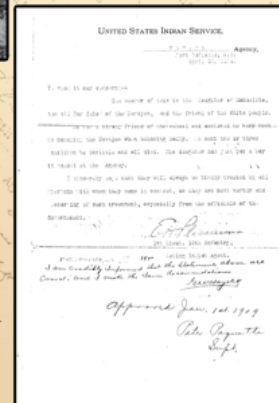 UNITED STATES INDIAN SERVICE.
Agency,
Fort Defiance,
To whom it may concern:--
The bearer of this is the daughter of Manuelito,
the old War Chief of the Navajos, and the friend of the White people.
He was a strong friend of the school and
the Navajos when behaving badly. He sent two or three
children to Carlisle and all died. His daughter has just put a boy
in school at the Agency.
I sincerely hope that they will always be kindly treated by all
persons with whom they come in contact, as they are most worthy and
deserving of kind treatment, especially from the officials of the
Government.
1st Lieut. 10th Cavalry,
Acting Indian Agent.
I am credibly informed that the statements above are
Correct and I make the same Recommendations
Approved Jan. 1st 1909
Peter Paquette
Supt.